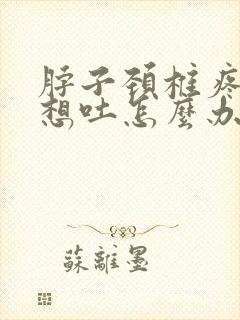 脖子頚椎疼
想吐怎麼办
蘇離墨